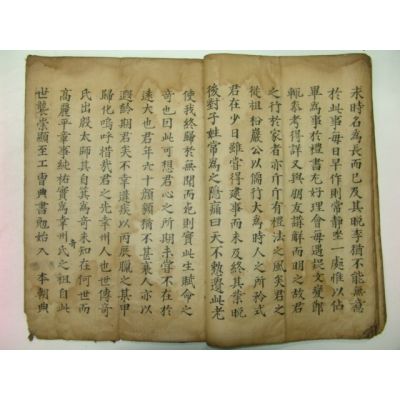 求時名為長而已及其晩李猶不能無意
於此事每日早作則常靜坐一處惟以佔
畢為事於禮書尤好理會每遇疑文變節
輒參考得詳又與朋友講解而明之故君
之行於家者亦斤斤有楷法之風矣君之
從祖 嚴公以篤行大為時人之所矜式
君在少日雖嘗得逮事而未及終其業晩
後對子姓常為之隱痛曰天不憖遺此老
使我終歸於無聞而死則實此生賦命之
奇也因此可想君心之所期未嘗不在於
遠大也君年六十顧顏猶不甚衰人亦以
遐齡期君矣不幸遘疾以丙辰臘之某甲
歸化嗚呼我知君之先幸人也世傳奇
氏出殷太師其自箕為奇未知在何世而
高麗平章事純祐實為幸州氏之祖自此
世襲崇顯至工曹典書勉始入 本朝典
奇